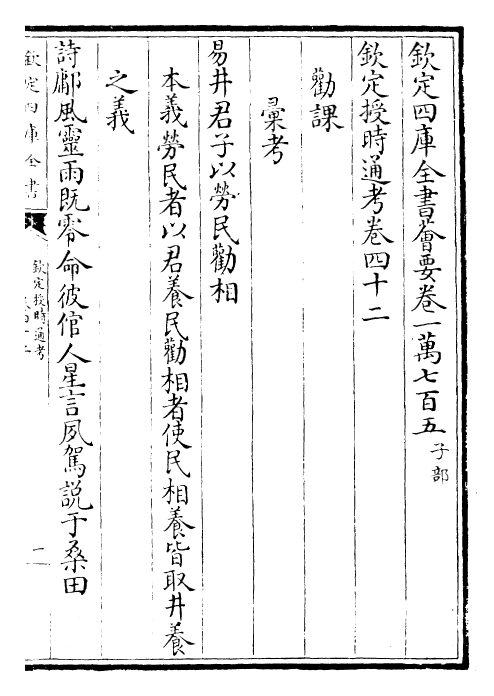 欽定四庫全書薈要卷一萬七百五子部
欽定授時通考卷四十二
勸課
彚考
易井君子以勞民勸相
本義勞民者以君養民勸相者使民相養皆取井養
之義
詩鄘風靈雨既零命彼倌人星言夙駕説于桑田
欽定四庫全書
欽定授時通考
一